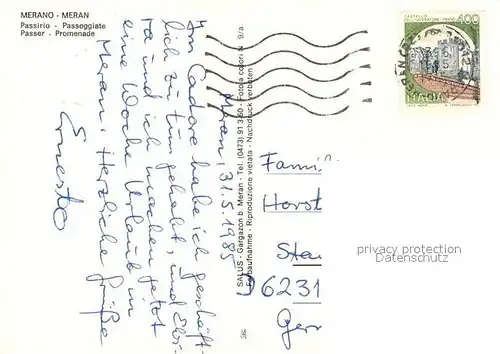 MERANO - MERAN
Passirio - Passeggiate
Passer - Promenade
Meran, 31.5.1985
In Cadore habe ich geschäft-
lich zu tun gehabt, und
und ich machen jetzt
eine Woche Urlaub in
Meran. Herzliche Grüße
Ernesto
SALUS - Gargazon b. Meran - Tel. (0473) 91 3 60 - Fotocolor N. 9/a
Farbaufnahme - Riproduzione vietata - Nachdruck verboten
CASTELLO
600
ITALIA
Famil
Horst
Sta
96231
Ger
privacy protection
Datenschutz